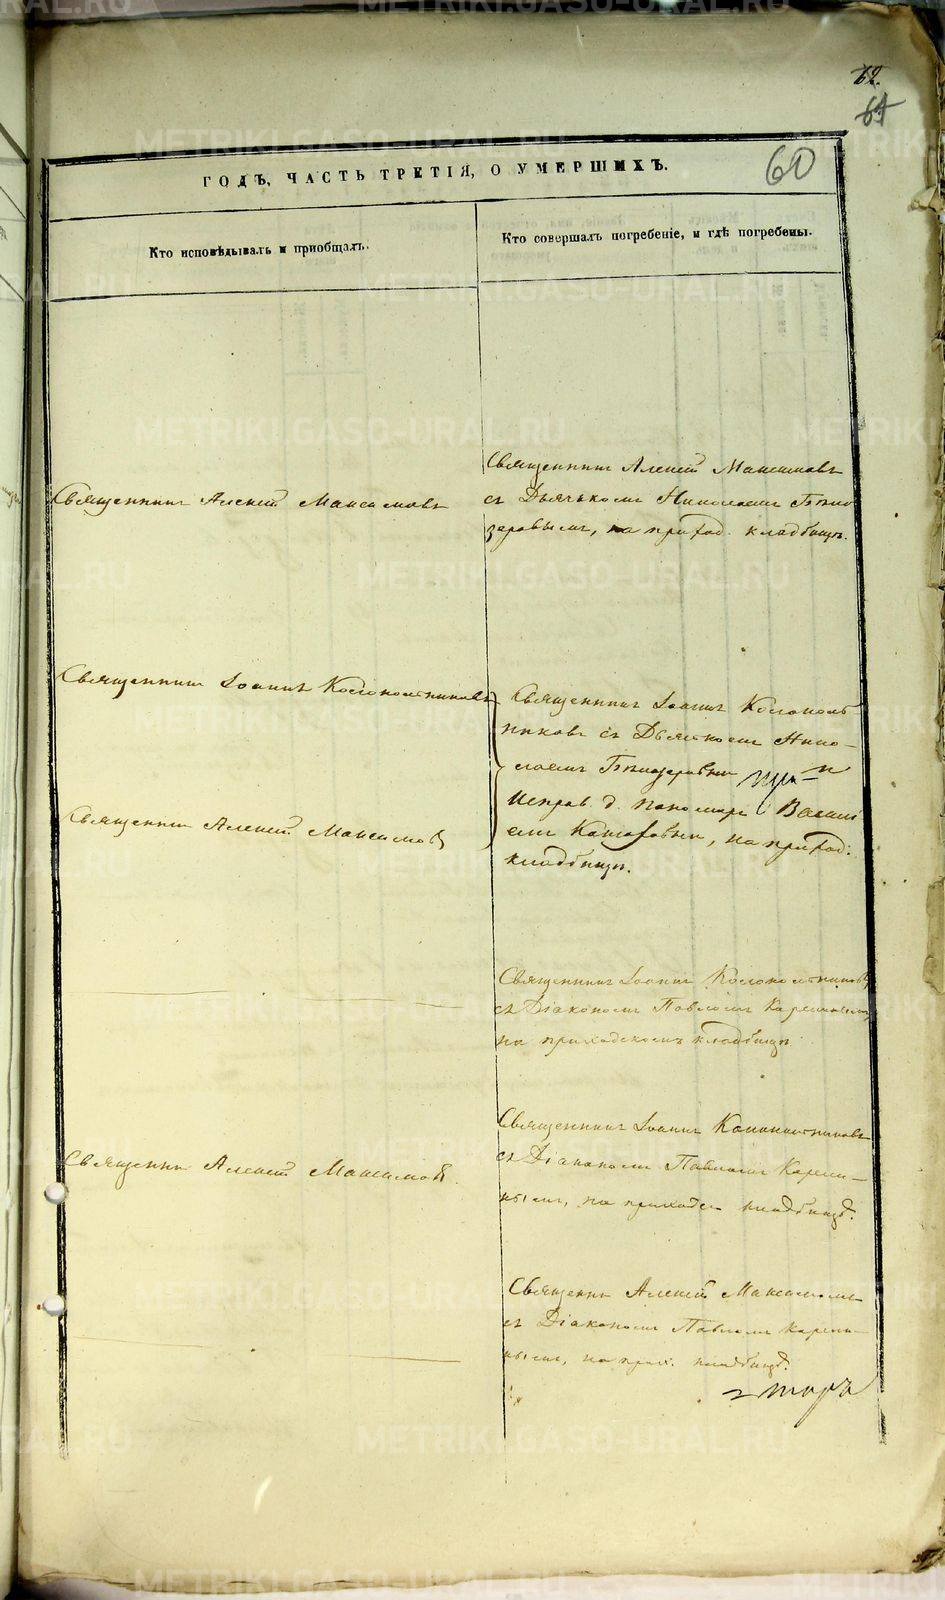 62.
64
60
ГОДЪ, ЧАСТЬ ТРЕТІЯ, О УМЕРШИХЪ.
Кто исповѣдывалъ и приобщалъ.
Кто совершалъ погребеніе, и гдѣ погребены.
Священникъ Алексѣй Максимовъ
Священникъ Алексѣй Максимовъ
съ Дьячькомъ Николаемъ Бѣло
зеровымъ, на приход. кладбищѣ.
Священникъ Іоаннъ Колокольниковъ
Священникъ Іоаннъ Колоколь
никовъ съ Дьячкомъ Нико-
лаемъ Бѣлозеровым и
Исправ. д. пономаря Васили
емъ, на приход.
кладбищѣ.
Священник Алексѣй Максимов
Священникъ Іоаннъ Колокольниковъ
съ Діакономъ Павломъ
на приходскомъ кладбищѣ
Священникъ Іоаннъ Колокольниковъ
съ Діакономъ Павломъ
на приходс кладбищѣ.
Священни Алексѣй Максимов.
Священн Алексѣй Максимовъ
съ Діакономъ Павломъ
на прих. кладбищѣ.
METRIKI.GASO-URAL.RU